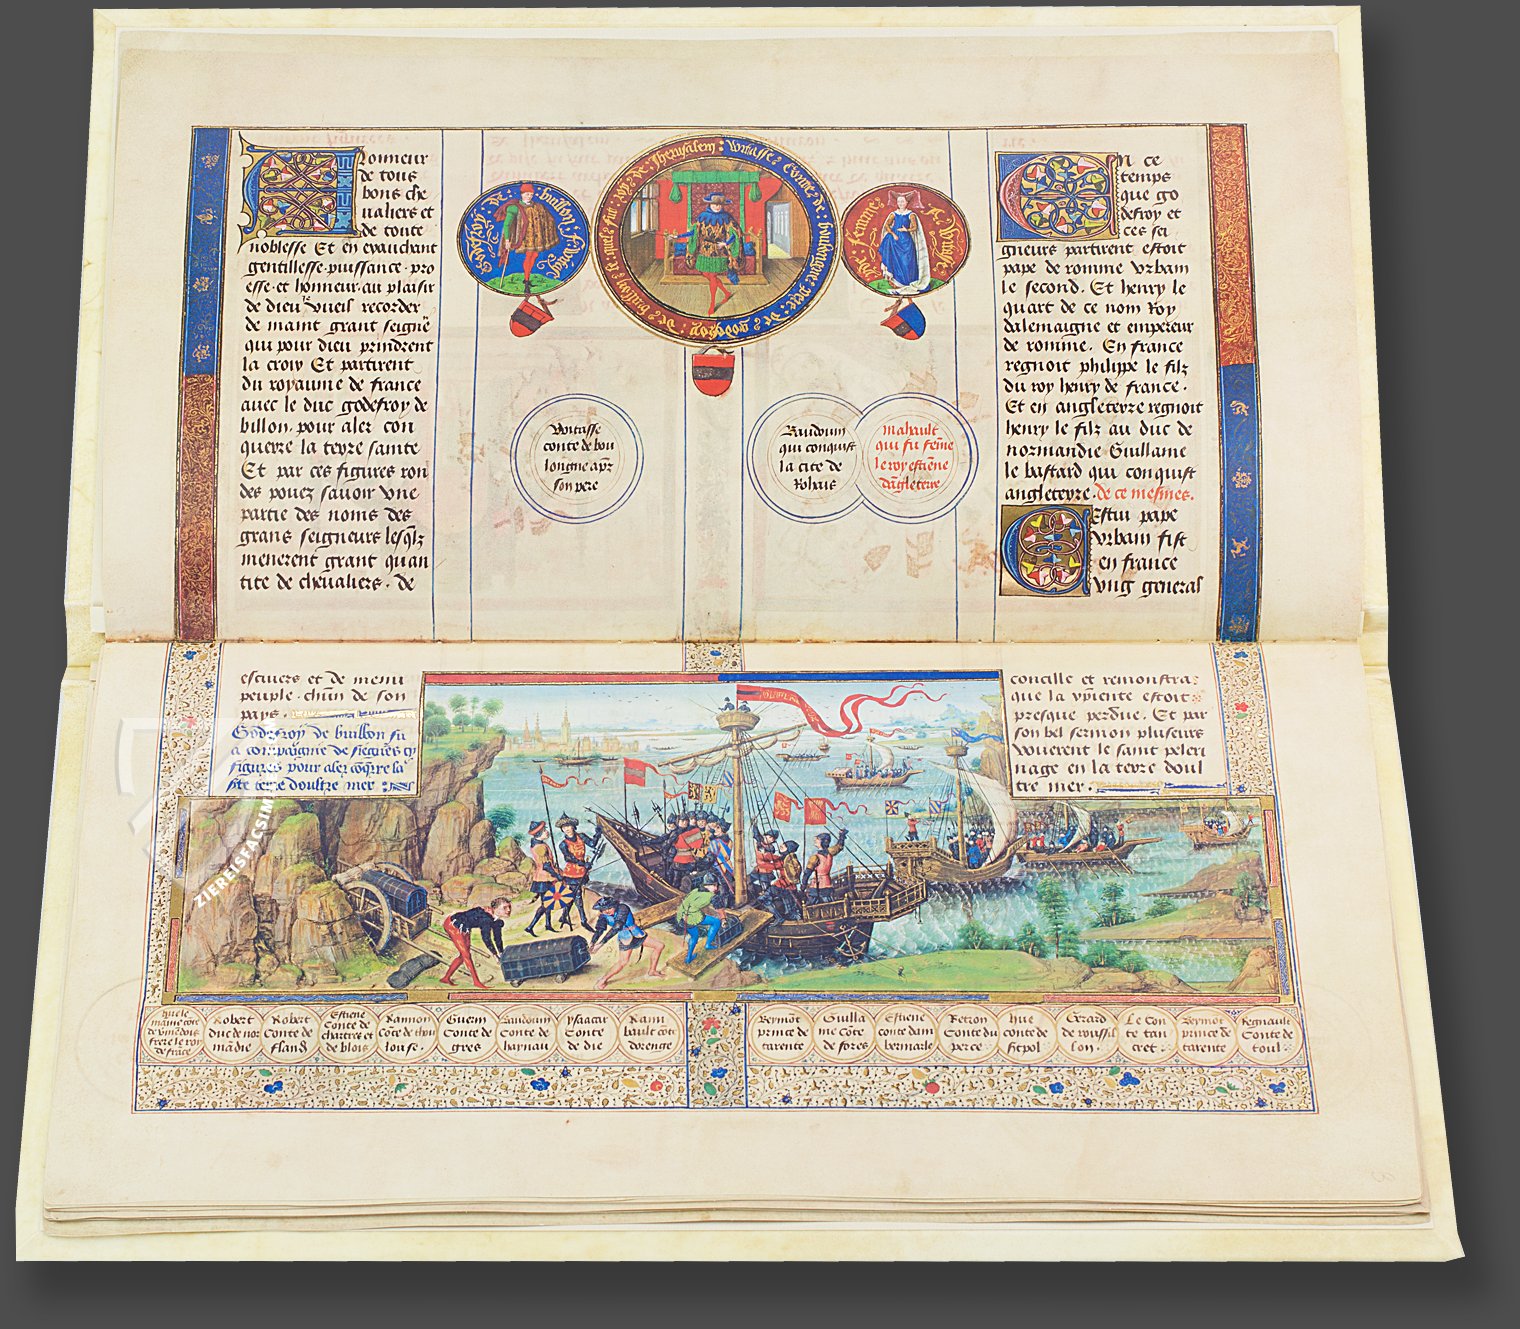 Honneur
de tous
bons che
ualiers et
de toute
noblesse Et en exauchant
gentillesse puissance pro
esse et honneur au plaisir
de dieu Vueil recorder
de maint grant seignē
qui pour dieu prindrent
la croix Et partirent
du royaume de france
auec le duc godefroy de
billon pour aler con
querre la terre sainte
Et par ces figures ron
des pouez sauoir vne
partie des noms des
grans seigneurs lesq̄lz
menerent grant quan
tite de cheualiers. de
Godefroy de buillon
Wistasse Conte de boulongne pere de godeffroy de buillon le quel fut roy de Jherusalem
Yde femme A Wistasse
Wistasse
conte de bou
longne apz
son pere
Baudouin
qui conquist
la cite de
Rohais
Mahault
qui fu feme
le roy estiene
dāgleterre
En ce
temps
que go
defroy et
ces sei
gneurs partirent estoit
pape de romme Vrbain
le second. Et henry le
quart de ce nom Roy
dalemaigne et empereur
de romme. En france
regnoit philippe le filz
du roy henry de france.
Et en angleterre regnoit
henry le filz au duc de
normandie Guillame
le bastard qui conquist
angleterre. de ce mesmes.
Cestui pape
Vrbain fist
en france
vng general
escuiers et de menu
peuple. chūn de son
pays.
Godefroy de buillon fu
a compaignie de siegēs q̄
figurēs pour aler cōq̄rre la
ste terre doultre mer
concille et remonstra
que la vīnente estoit
presque perdue. Et par
son bel sermon pluseurs
vouerent le saint peleri
nage en la terre doul
tre mer.
ZIEREIS FACSIM
hue le
maine cōte
de vmēdois
frere le roy
de frāce
Robert
duc de nor
mādie
Robert
Conte de
flandrs
Estiene
Conte de
chartres et
de blois
Raimon
Cōte de thou
louse.
Guerin
Conte de
gres
Baudouin
Conte de
haynau
ysaacar
Conte
de die
Raim
bault cōte
dorenge
Beymōt
prince de
tarente
Guilla
me cōte
de fores
Estiene
conte daui
bermarle
Retron
Conte du
perce
hue
conte de
st pol
Gerard
de roussil
lon.
Le Con
te tan
cret
Beymōt
prince de
tarente
Regnault
Conte de
toul